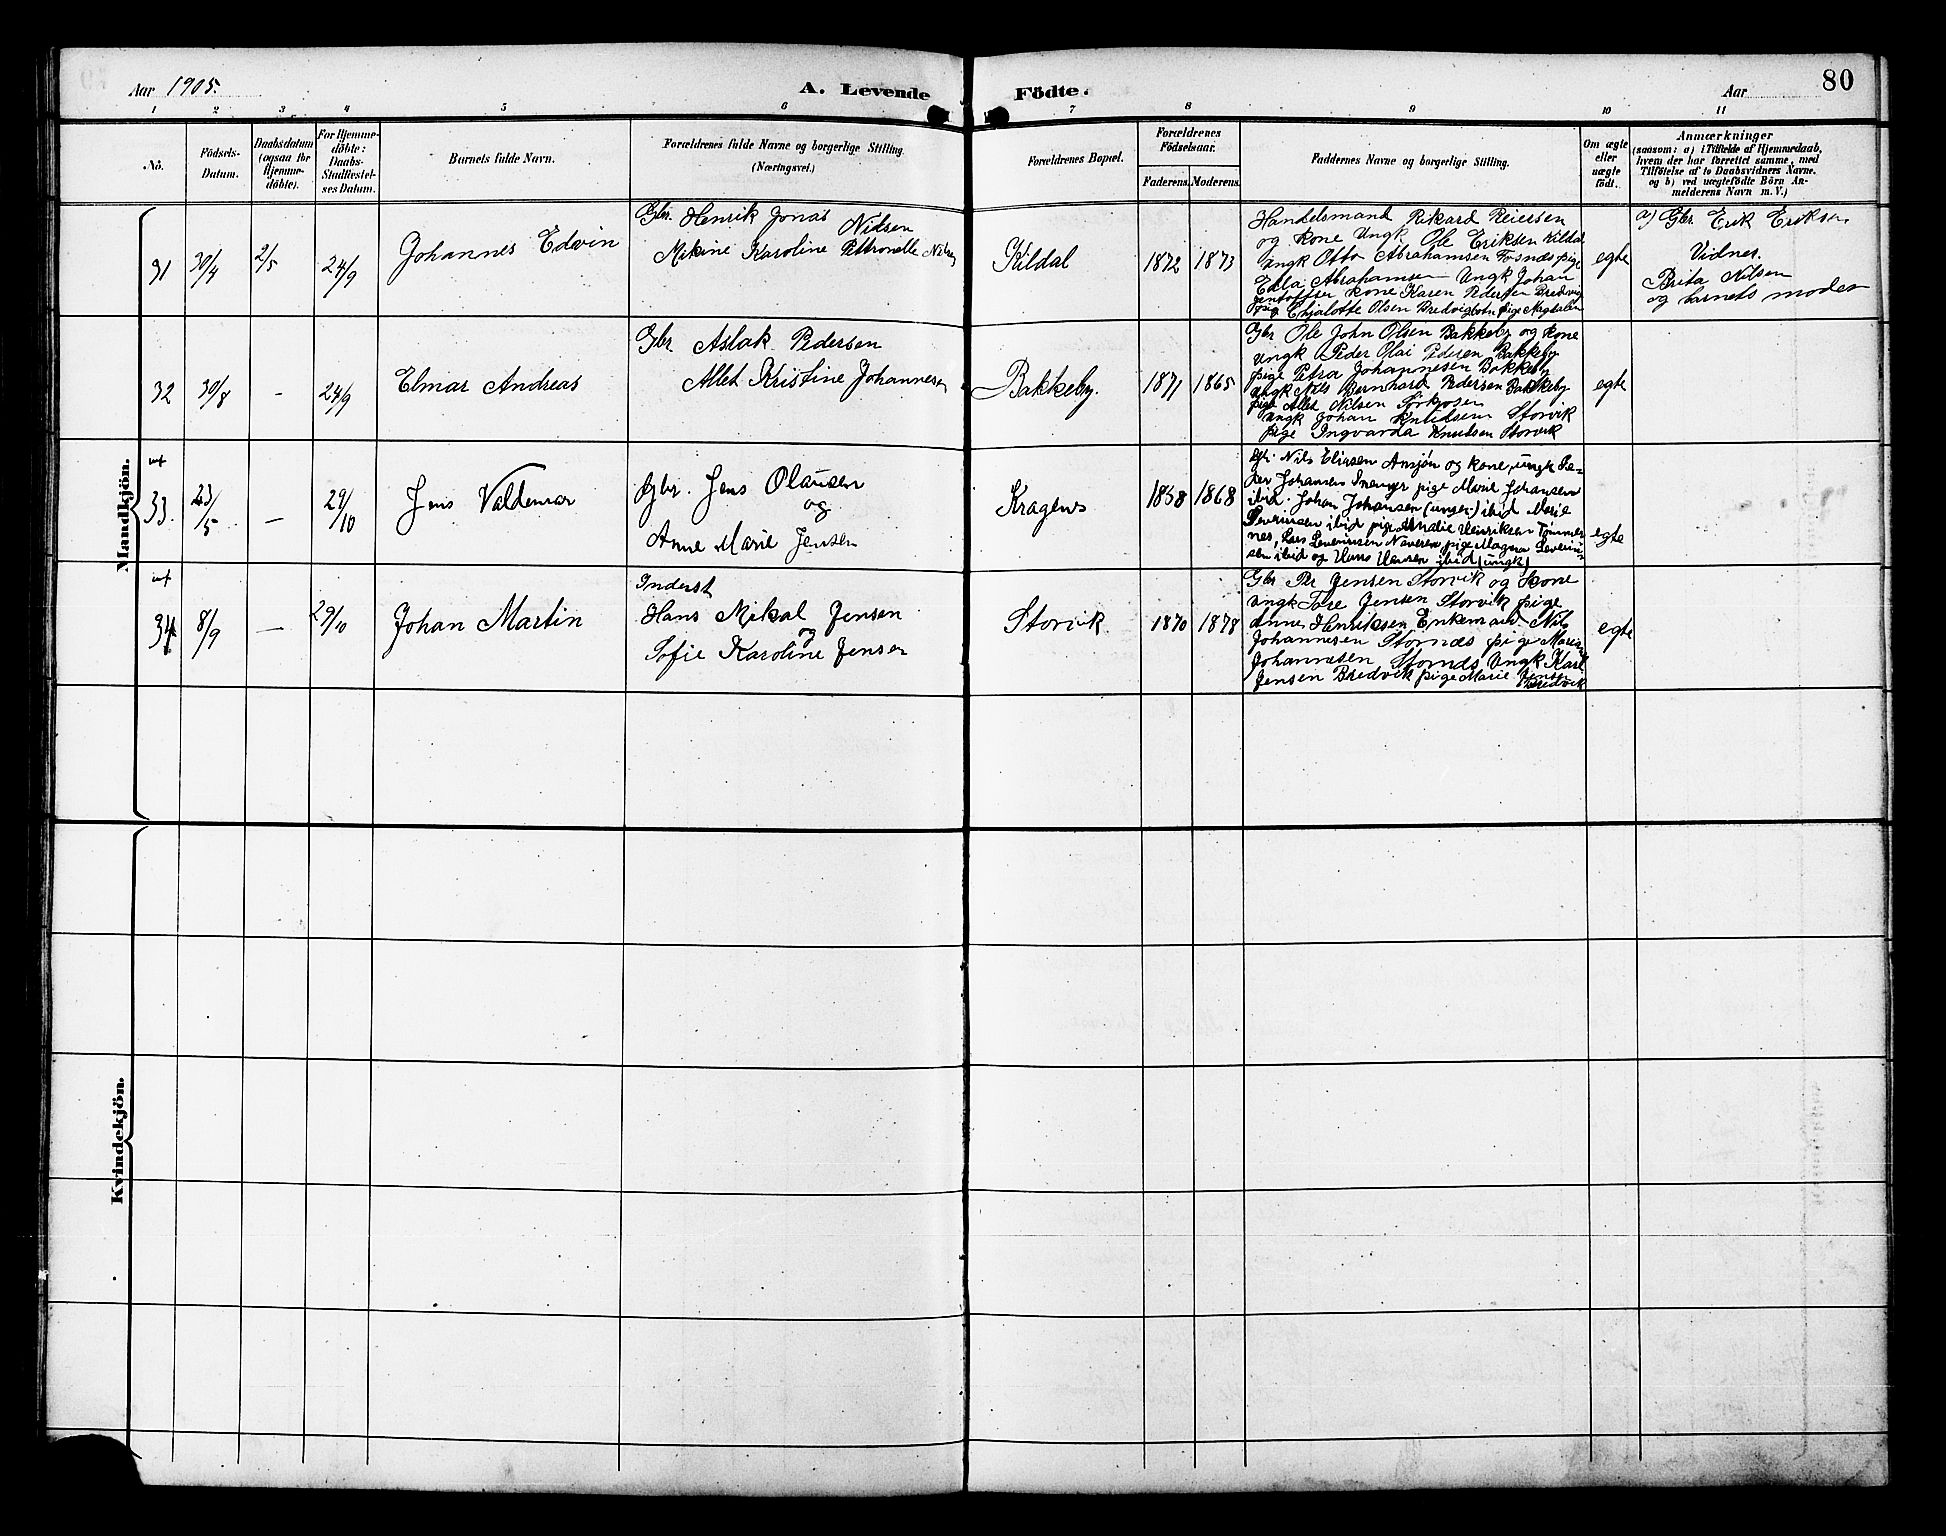 Aar 1905.
A. Levende
Födte.
Aar
80
1 2 3 4 5 6 7 8 9 10 11
No.
Födsels-
Datum.
Daabsdatum
(ogsaa for
Hjemme-
döbte).
For Hjemme-
döbte:
Daabs-
Stadfæstel-
ses Datum.
Barnets fulde Navn.
Forældrenes fulde Navne og borgerlige Stilling.
(Næringsvei.)
Forældrenes Bopæl.
Forældrenes
Födselsaar.
Faderens.
Moderens.
Faddernes Navne og borgerlige Stilling.
Om ægte
eller
uægte
født.
Anmærkninger
(saasom: a) i Tilfælde af Hjemmedaab,
hvem der har forrettet samme, med
Tilföielse af to Daabsvidners Navne.
og b) ved uægtefödte Börn An-
melderens Navn m. V.)
Mandkjön.
31
30/4
2/5
24/9
Johannes Edvin
Gbr. Henrik Jonas
Nilsen
Mikine Karoline Petronelle Nilsen
Kildal
1872
1873
Handelsmand Rikard Reiersen
og kone Ungk Ole Eriksen Kildal
Ungk Otto Abrahamsen Fosnæs pige
Edla Abrahamsen Ungk Johan
kone Karen Pedersen Bredvig
pig Chjalotte Olsen Bredvigbotn pige Magdalen
egte
a) Gbr. Erik Eriksen
Vidnes.
Brita Nilsen
og barnets moder
32
30/8
-
24/9
Elmar Andreas
Gbr Aslak Pedersen
Allet Kristine Johannesen
Bakkeby.
1871
1865
Gbr Ole John Olsen Bakkeby og kone
Ungk Peder Olai Pedersen Bakkeby
pige Petra Johannesen Bakkeby
Ungk Nils Bernhard Pedersen Bakkeby
pige Allet Nilsen Sørkjosen
Ungk Johan Knudsen Storvik
pige Ingvarda Knudsen Storvik
egte
33.
23/5
—
29/10
Jens Valdemar
Gbr. Jens Olausen
og
Anne Marie Jensen
Kragenes
1858
1868
Gbr. Nils Eliasen Ansjøn og kone, ungk Pe-
der Johansen pige Marie Johansen
ibid. Johan Johansen (ungk) ibid Marie
Severinsen ibid pige Amalie Henriksen Tømmer-
nes, Lars Severinsen Naveren, pige Magna Severin-
sen ibid og Hans Hansen ibid (ungk)
egte
34.
8/9
—
29/10
Johan Martin
Inderst
Hans Mikal Jensen
og
Sofie Karoline Jensen
Storvik
1870
1878
Gbr Per Jensen Storvik og kone
Ungk Tore Jensen Storvik pige
Anne Henriksen Enkemand Nils
Johannesen Stornæs pige Marie
Johannesen Stornæs Ungk Karl
Jensen Bredvik pige Marie Jensen
Bredvik
egte
Kvindekjön.